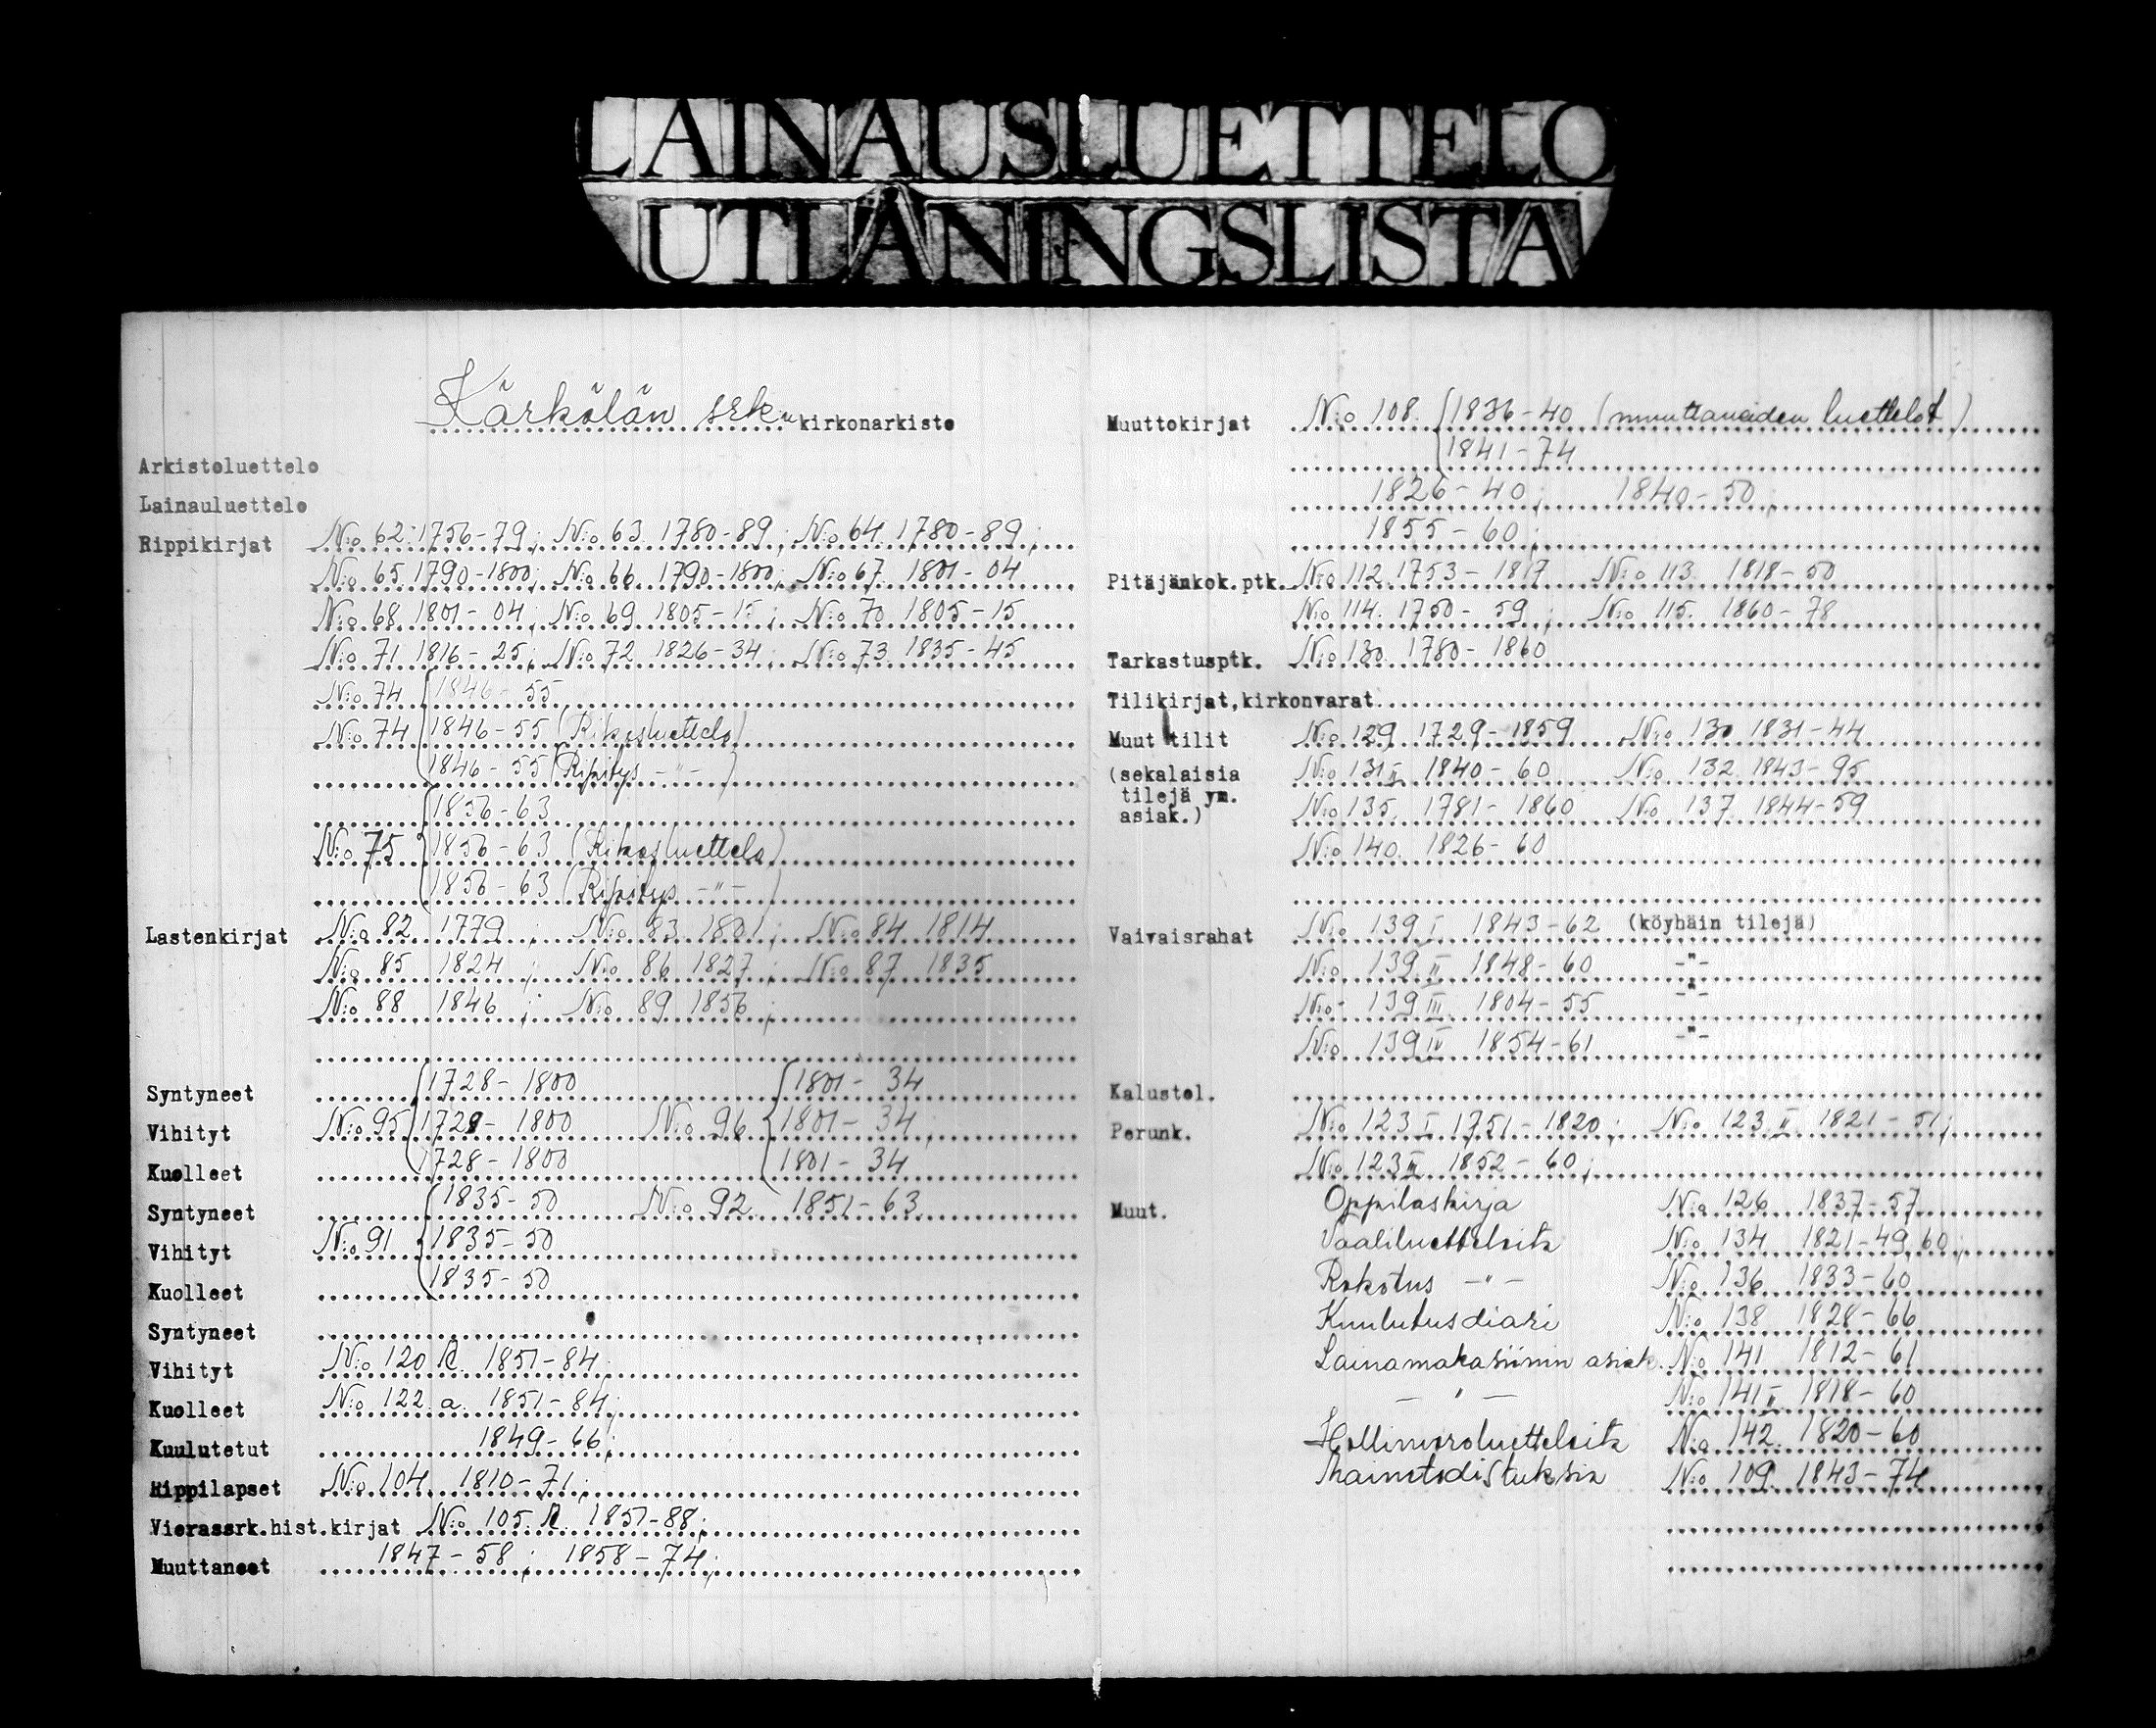 LAINAUSLUETTELO
UTLÅNINGSLISTA
Kärkölän srk:n kirkonarkisto
Arkistoluettelo
Lainauluettelo
Rippikirjat N:o 62 1756-79; N:o 63 1780-89; N:o 64 1780-89;
N:o 65 1790-1800; N:o 66 1790-1800; N:o 67 1801-04
N:o 68 1801-04; N:o 69 1805-15; N:o 70 1805-15
N:o 71 1816-25; N:o 72 1826-34; N:o 73 1835-45
N:o 74 1846-55
N:o 74 1846-55 (Rikosluettelo)
1846-55 (Ripitys -"-)
1856-63
N:o 75 1856-63 (Rikosluettelo)
1856-63 (Ripitys -"-)
Lastenkirjat N:o 82 1779; N:o 83 1801; N:o 84 1814
N:o 85 1824; N:o 86 1827; N:o 87 1835
N:o 88 1846; N:o 89 1856;
Syntyneet 1728-1800 1801-34
Vihityt N:o 95 1729-1800 N:o 96 1801-34;
Kuolleet 1728-1800 1801-34
Syntyneet 1835-50 N:o 92 1851-63
Vihityt N:o 91 1835-50
Kuolleet 1835-50
Syntyneet
Vihityt N:o 120 1851-84
Kuolleet N:o 122 a 1851-84;
Kuulutetut 1849-66;
Rippilapset N:o 104 1810-71;
Vierassrk.hist.kirjat N:o 105 1851-88;
Muuttaneet 1847-58; 1858-74;
Muuttokirjat N:o 108 1836-40 (muuttaneiden luettelot)
1841-74
1826-40; 1840-50;
1855-60;
Pitäjänkok.ptk. N:o 112 1753-1817 N:o 113 1818-50
N:o 114 1750-59; N:o 115 1860-78
Tarkastusptk. N:o 130 1780-1860
Tilikirjat,kirkonvarat
Muut tilit N:o 129 1729-1859 N:o 130 1831-44
(sekalaisia N:o 131 II 1840-60 N:o 132 1843-95
tilejä ym.
asiak.) N:o 135 1781-1860 N:o 137 1844-59
N:o 140 1826-60
Vaivaisrahat N:o 139 I 1843-62 (köyhäin tilejä)
N:o 139 II 1848-60 -"-
N:o 139 III 1804-55 -"-
N:o 139 IV 1854-61 -"-
Kalustol.
Perunk. N:o 123 I 1751-1820; N:o 123 II 1821-51;
N:o 123 III 1852-60;
Muut. Oppilaskirja N:o 126 1837-57
Vaaliluetteloita N:o 134 1821-49, 60;
Rokotus -"- N:o 136 1833-60
Kuulutusdiari N:o 138 1828-66
Lainamakasiinin asiak. N:o 141 1812-61
-"- N:o 141 II 1818-60
Hollinvoroluetteloita N:o 142 1820-60
Mainetodistuksia N:o 109 1843-74